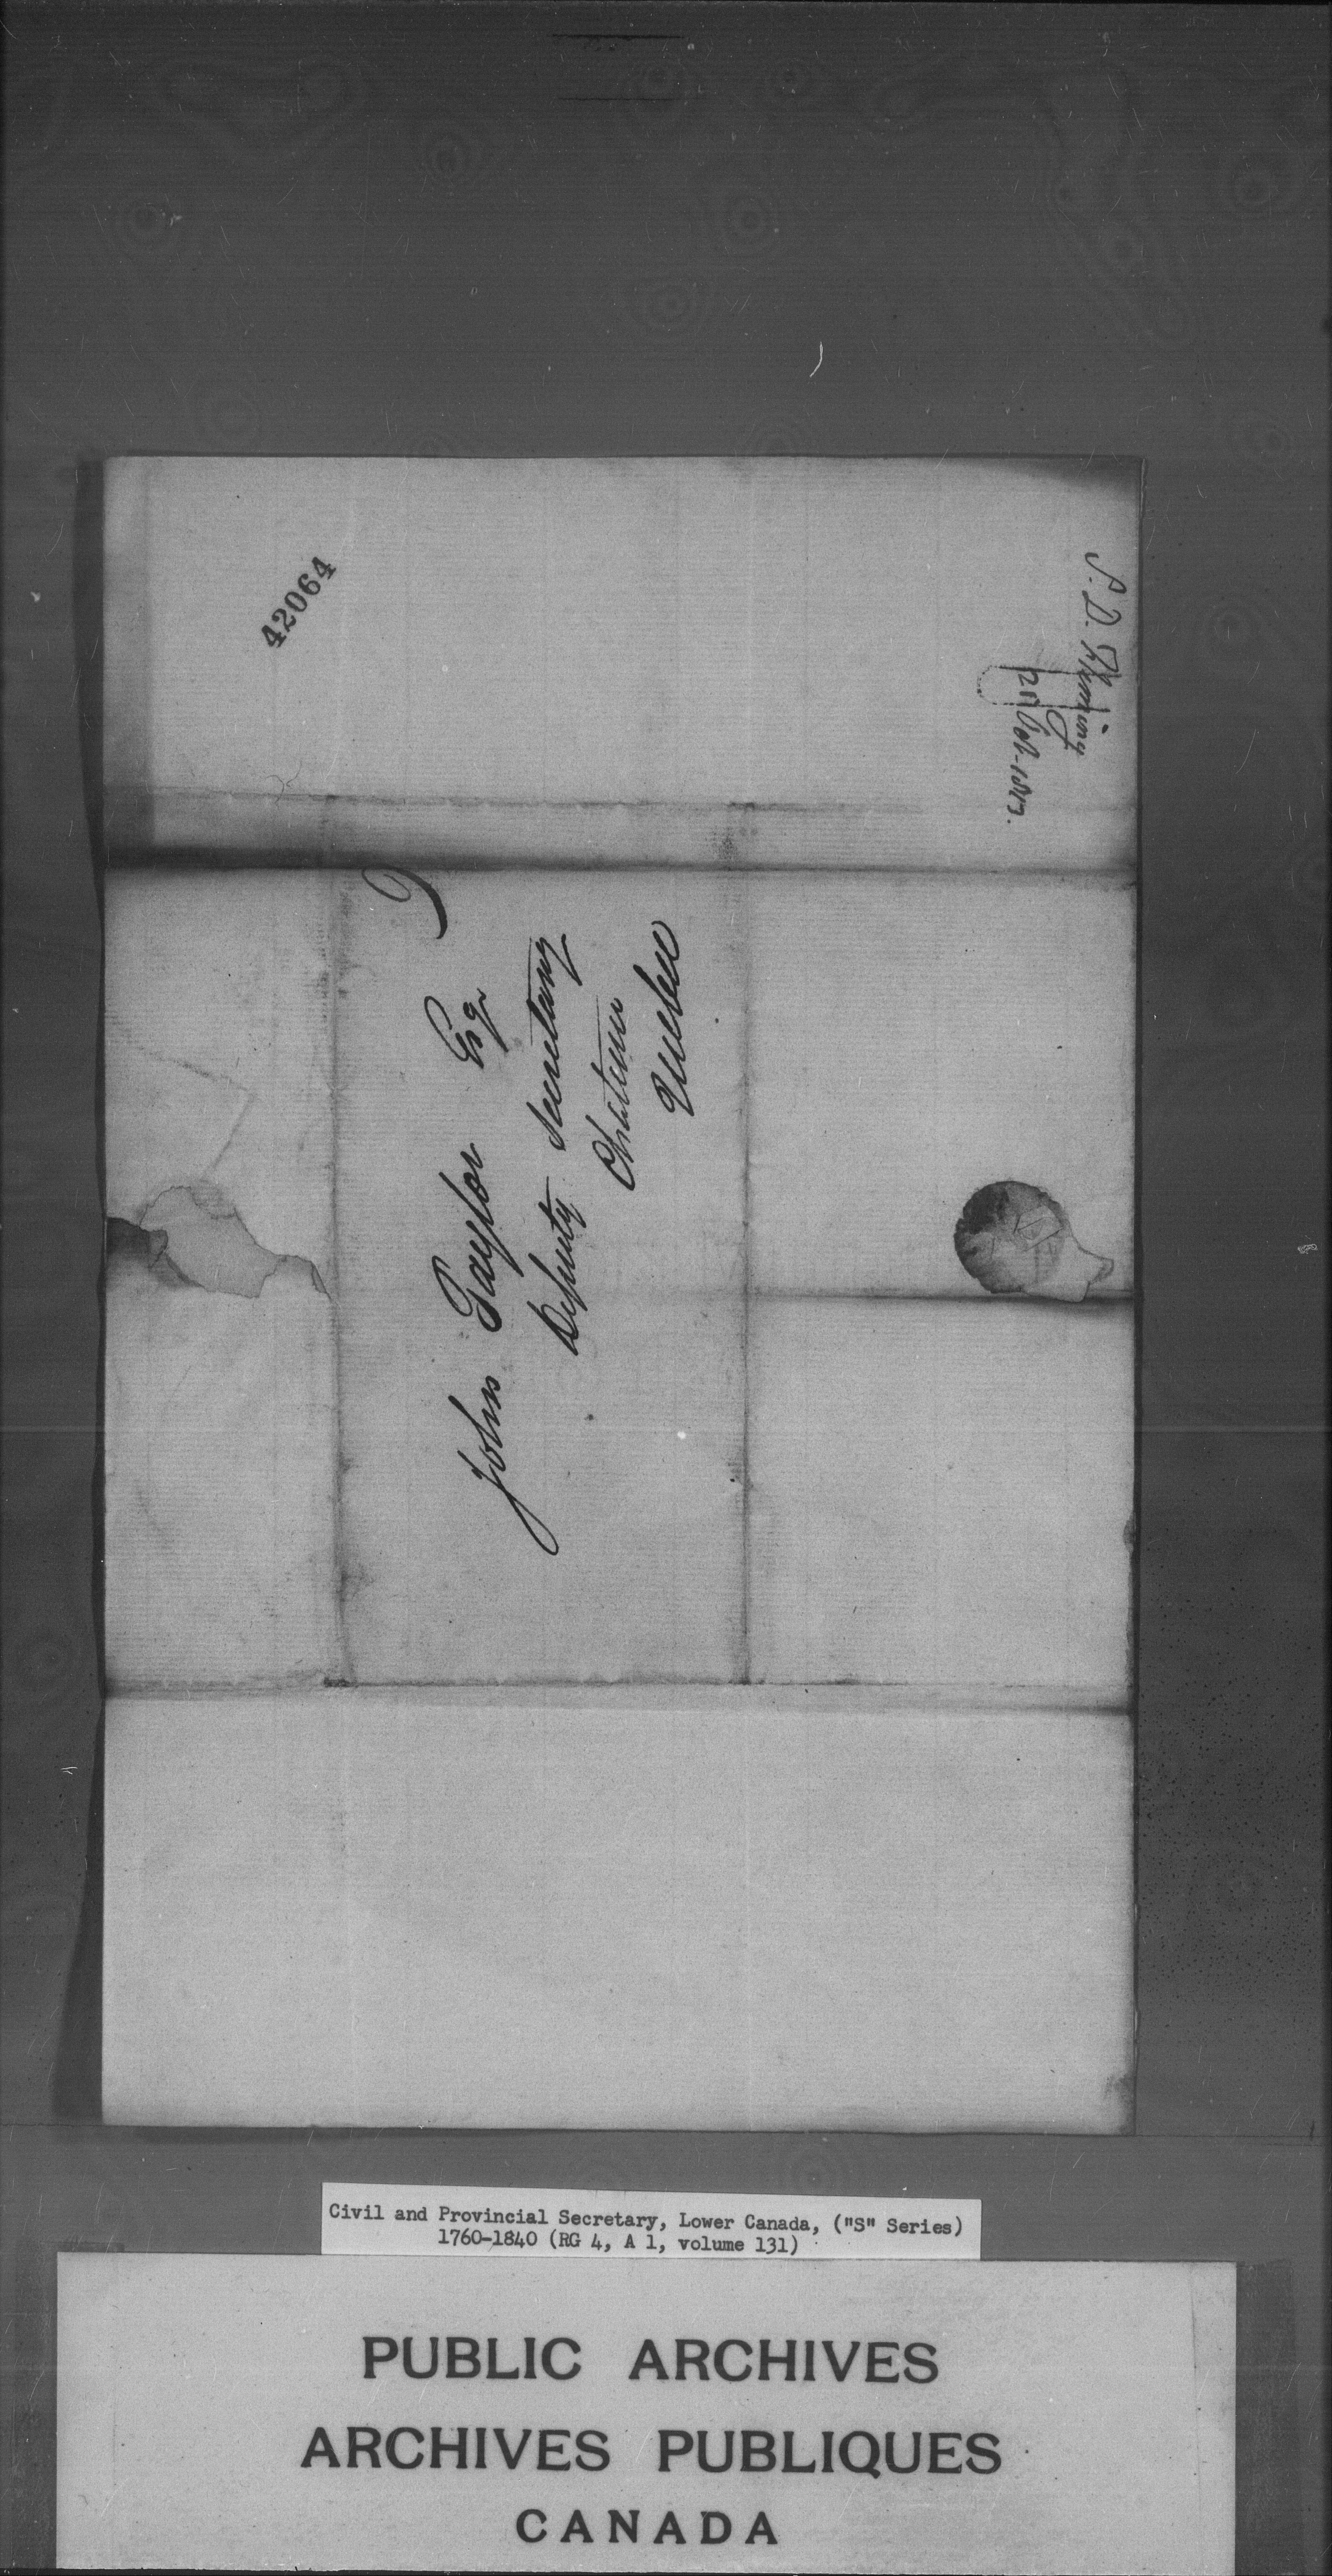 42064
S. D. Fleming
20 Oct. 1813.
John Taylor Esqr
Deputy Secretary
Chateau
Quebec
Civil and Provincial Secretary, Lower Canada, ("S" Series)
1760-1840 (RG 4, A 1, volume 131)
PUBLIC ARCHIVES
ARCHIVES PUBLIQUES
CANADA